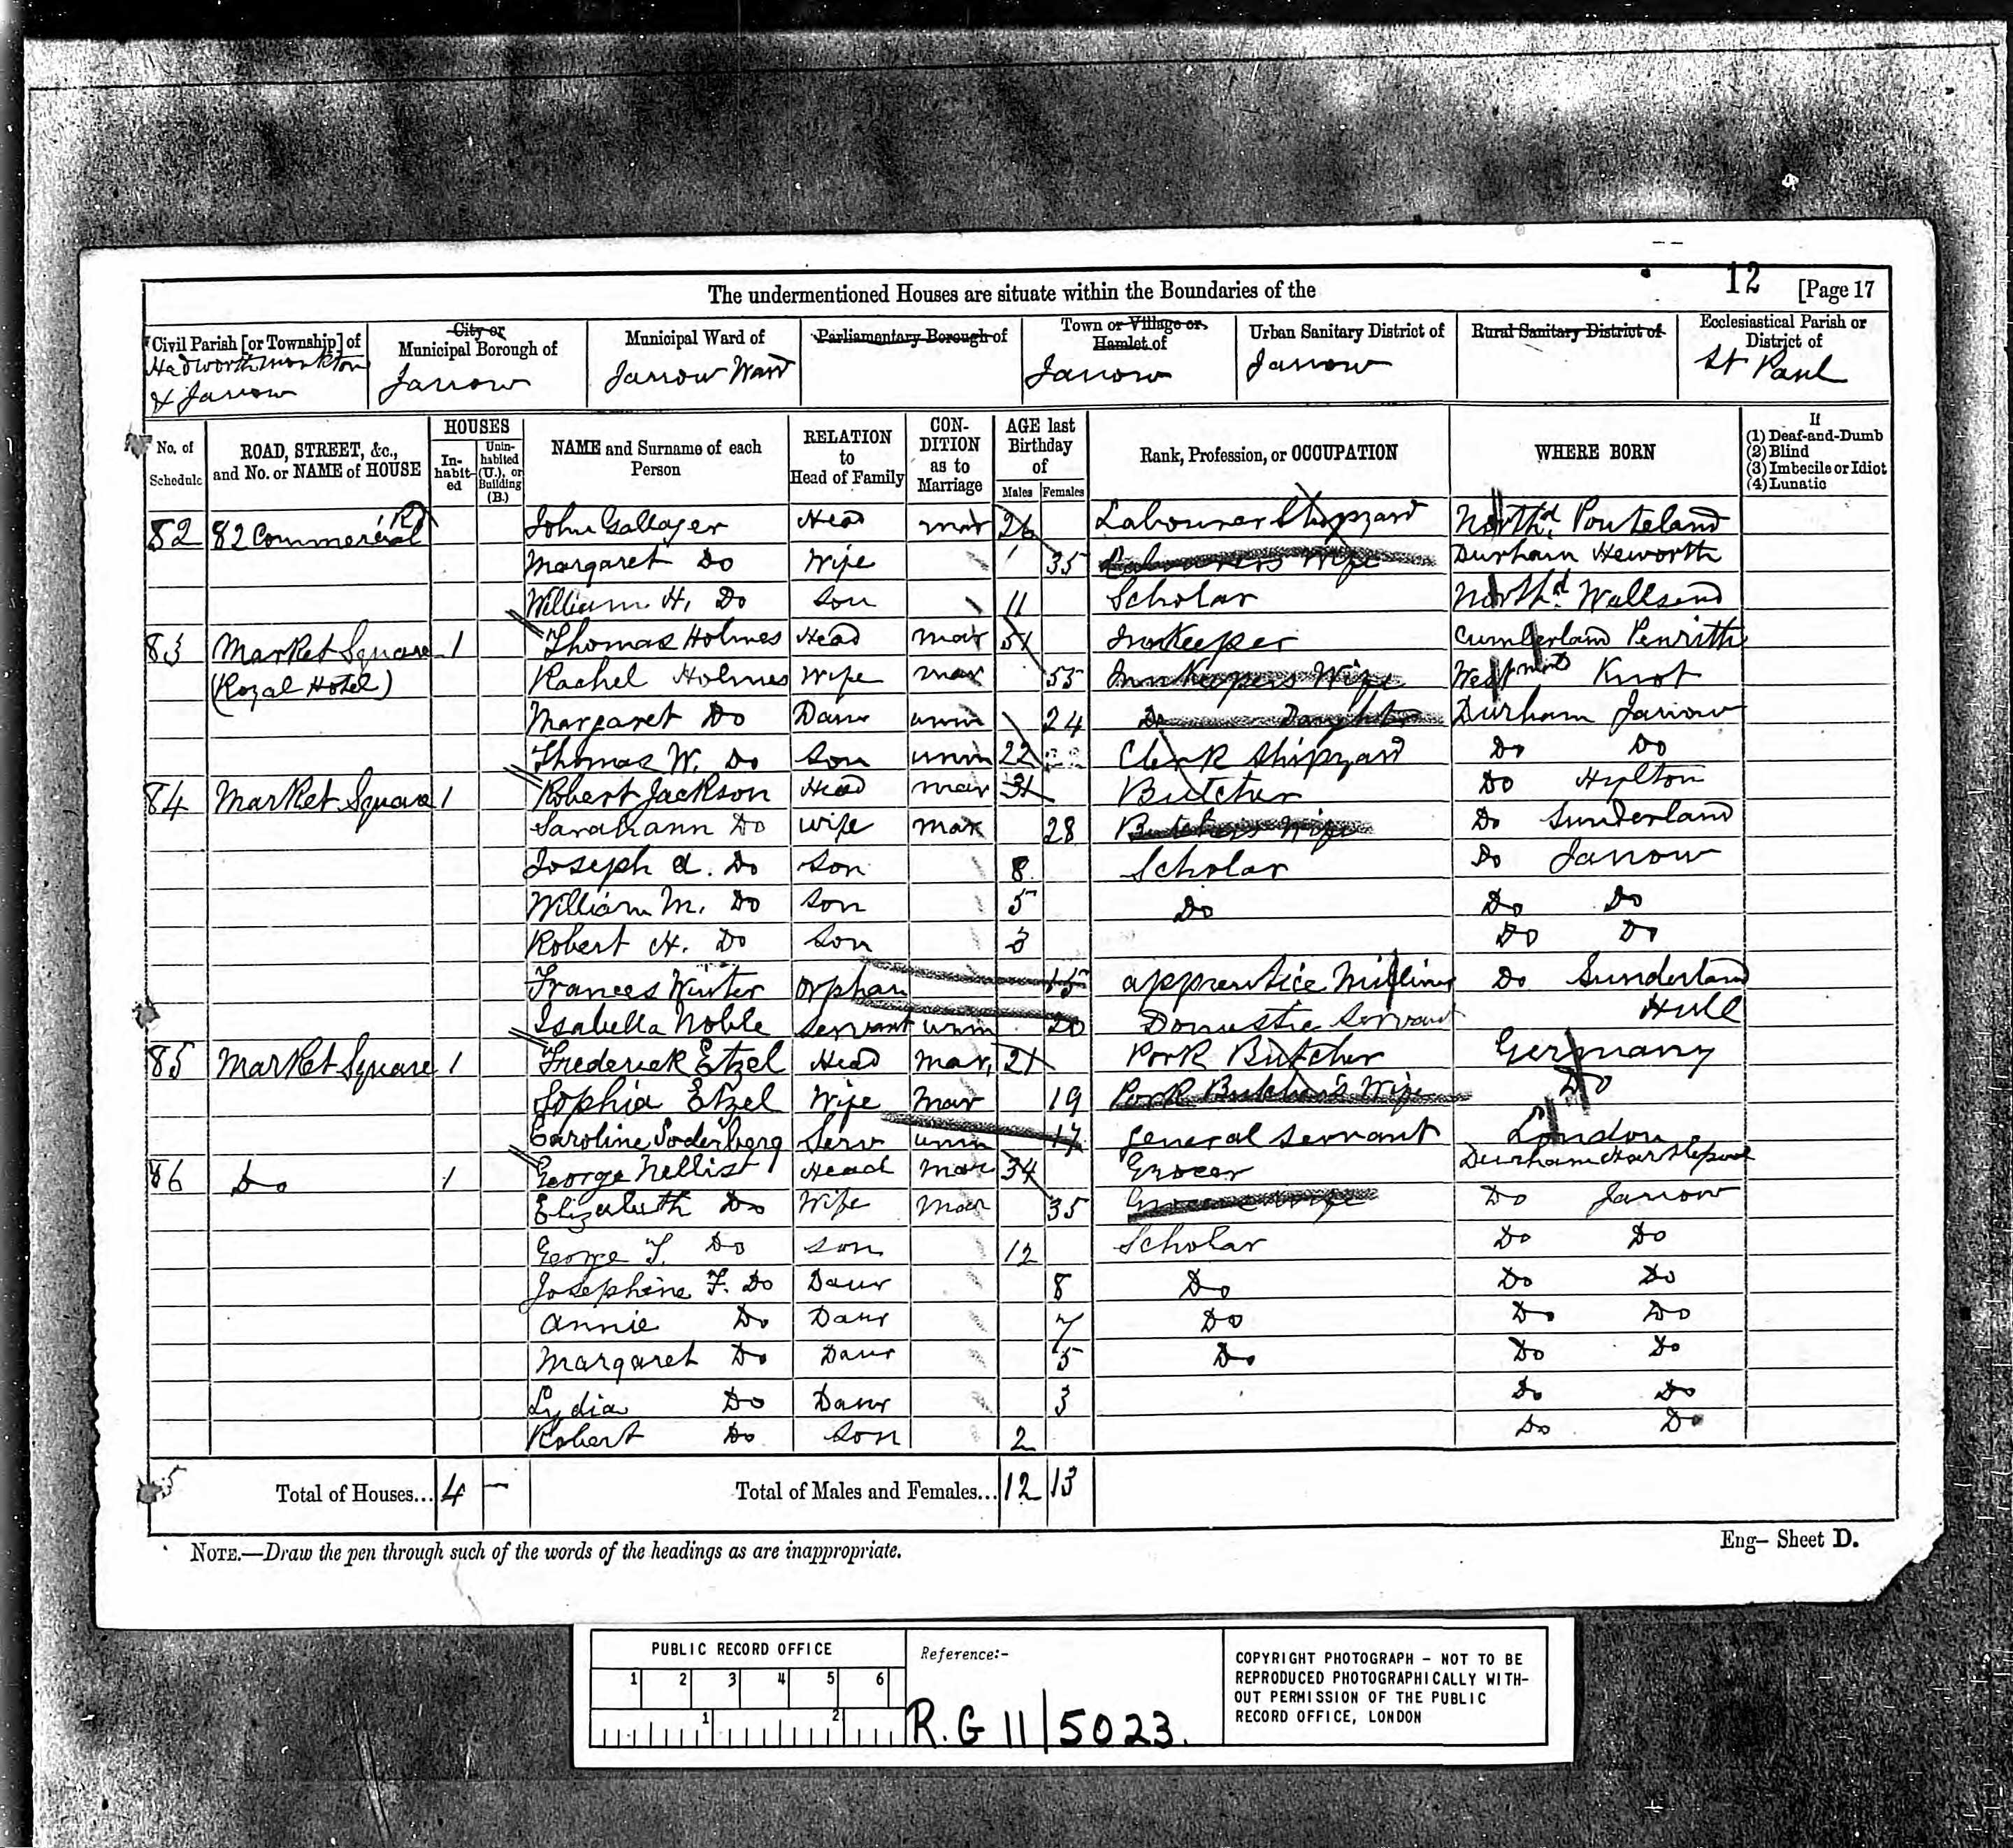 12 [Page 17
The undermentioned Houses are situate within the Boundaries of the
Civil Parish [or Township] of Hedworth Monkton & Jarrow
City or Municipal Borough of Jarrow
Municipal Ward of Jarrow Ward
Parliamentary Borough of
Town or Village or Hamlet of Jarrow
Urban Sanitary District of Jarrow
Rural Sanitary District of
Ecclesiastical Parish or District of St Paul
No. of Schedule
ROAD, STREET, &c., and No. or NAME of HOUSE
HOUSES
In-habit-ed
Unin-habited (U.), or Building (B.)
NAME and Surname of each Person
RELATION to Head of Family
CON-DITION as to Marriage
AGE last Birthday of
Males Females
Rank, Profession, or OCCUPATION
WHERE BORN
If
(1) Deaf-and-Dumb
(2) Blind
(3) Imbecile or Idiot
(4) Lunatic
82 82 Commercial Rd John Gallager Head mar 26 Labourer Shipyard North'd. Ponteland
Margaret Do Wife 35 Labourers Wife Durham Heworth
William H. Do Son 11 Scholar North'd. Wallsend
83 Market Square 1 Thomas Holmes Head Mar 51 Innkeeper Cumberland Penrith
(Royal Hotel) Rachel Holmes Wife mar 55 Inn Keepers Wife Westmd Knot
Margaret Do Daur unm 24 Do Daughter Durham Jarrow
Thomas W. Do Son unm 22 Clerk Shipyard Do Do
84 Market Square 1 Robert Jackson Head mar 31 Butcher Do Hylton
Sarahann Do Wife mar 28 Butchers Wife Do Sunderland
Joseph A. Do Son 8 Scholar Do Jarrow
William M. Do Son 5 Do Do Do
Robert H. Do Son 3 Do Do
Frances Winter Orphan 15 apprentice Milliner Do Sunderland
Isabella Noble Servant unm 20 Domestic Servant Hull
85 Market Square 1 Frederick Etzel Head Mar, 21 Pork Butcher Germany
Sophia Etzel Wife Mar 19 Pork Butcher's Wife Do
Caroline Soderberg Serv unm 17 General Servant London
86 Do 1 George Nellist Head Mar 34 Grocer Durham Hartlepool
Elizabeth Do Wife Mar 35 Grocers wife Do Jarrow
George T. Do Son 12 Scholar Do Do
Josephine F. Do Daur 8 Do Do Do
Annie Do Daur 7 Do Do Do
Margaret Do Daur 5 Do Do Do
Lydia Do Daur 3 Do Do
Robert Do Son 2 Do Do
5 Total of Houses... 4 — Total of Males and Females... 12 13
NOTE.—Draw the pen through such of the words of the headings as are inappropriate.
Eng— Sheet D.
PUBLIC RECORD OFFICE
1 2 3 4 5 6
1 2
Reference:-
R.G 11/5023.
COPYRIGHT PHOTOGRAPH – NOT TO BE
REPRODUCED PHOTOGRAPHICALLY WITH-
OUT PERMISSION OF THE PUBLIC
RECORD OFFICE, LONDON